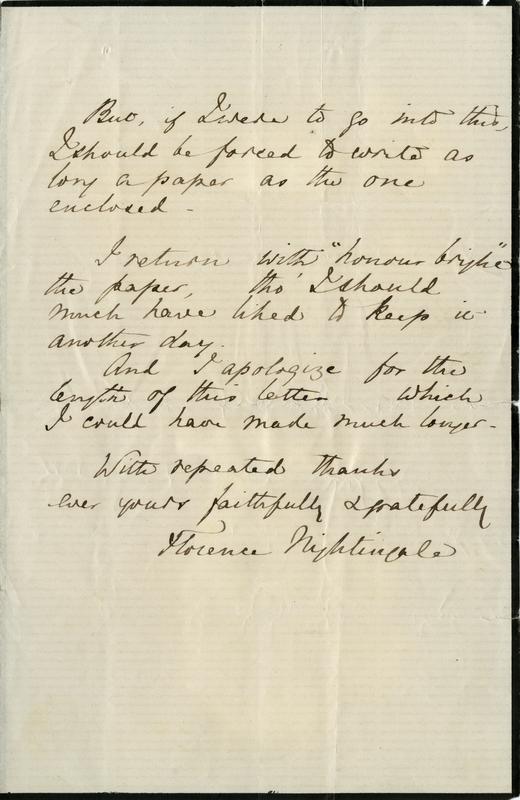 But, if I were to go into this,
I should be forced to write as
long a paper as the one
enclosed -
I return with "honour bright"
the paper, tho' I should
much have liked to keep it
another day.
And I apologize for the
length of this letter which
I could have made much longer -
With repeated thanks
ever yours faithfully & gratefully
Florence Nightingale